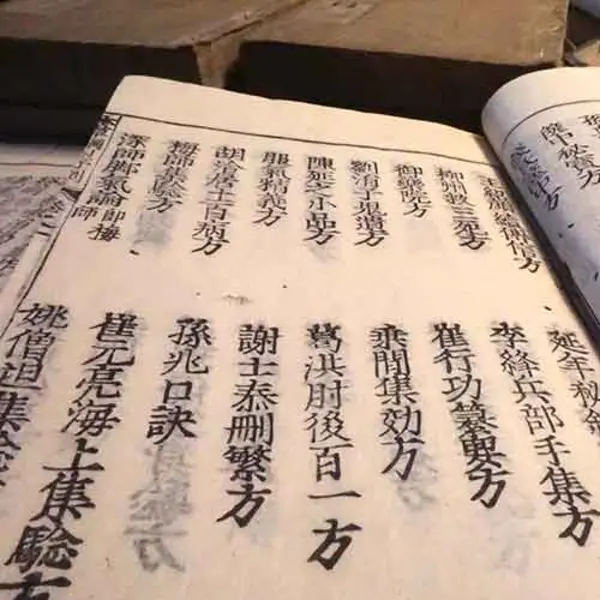 中秘寶方
續傳信方
柳州救三死方
御藥院方
劉涓子鬼遺方
陳延之小品方
服氣精義方
胡洽居士百病方
梅師集驗方
深師脚氣論即梅師
延年秘錄
李絳兵部手集方
崔行功纂要方
乘閒集効方
葛洪肘後百一方
謝士泰刪繁方
孫兆口訣
崔元亮海上集驗方
姚僧垣集驗方